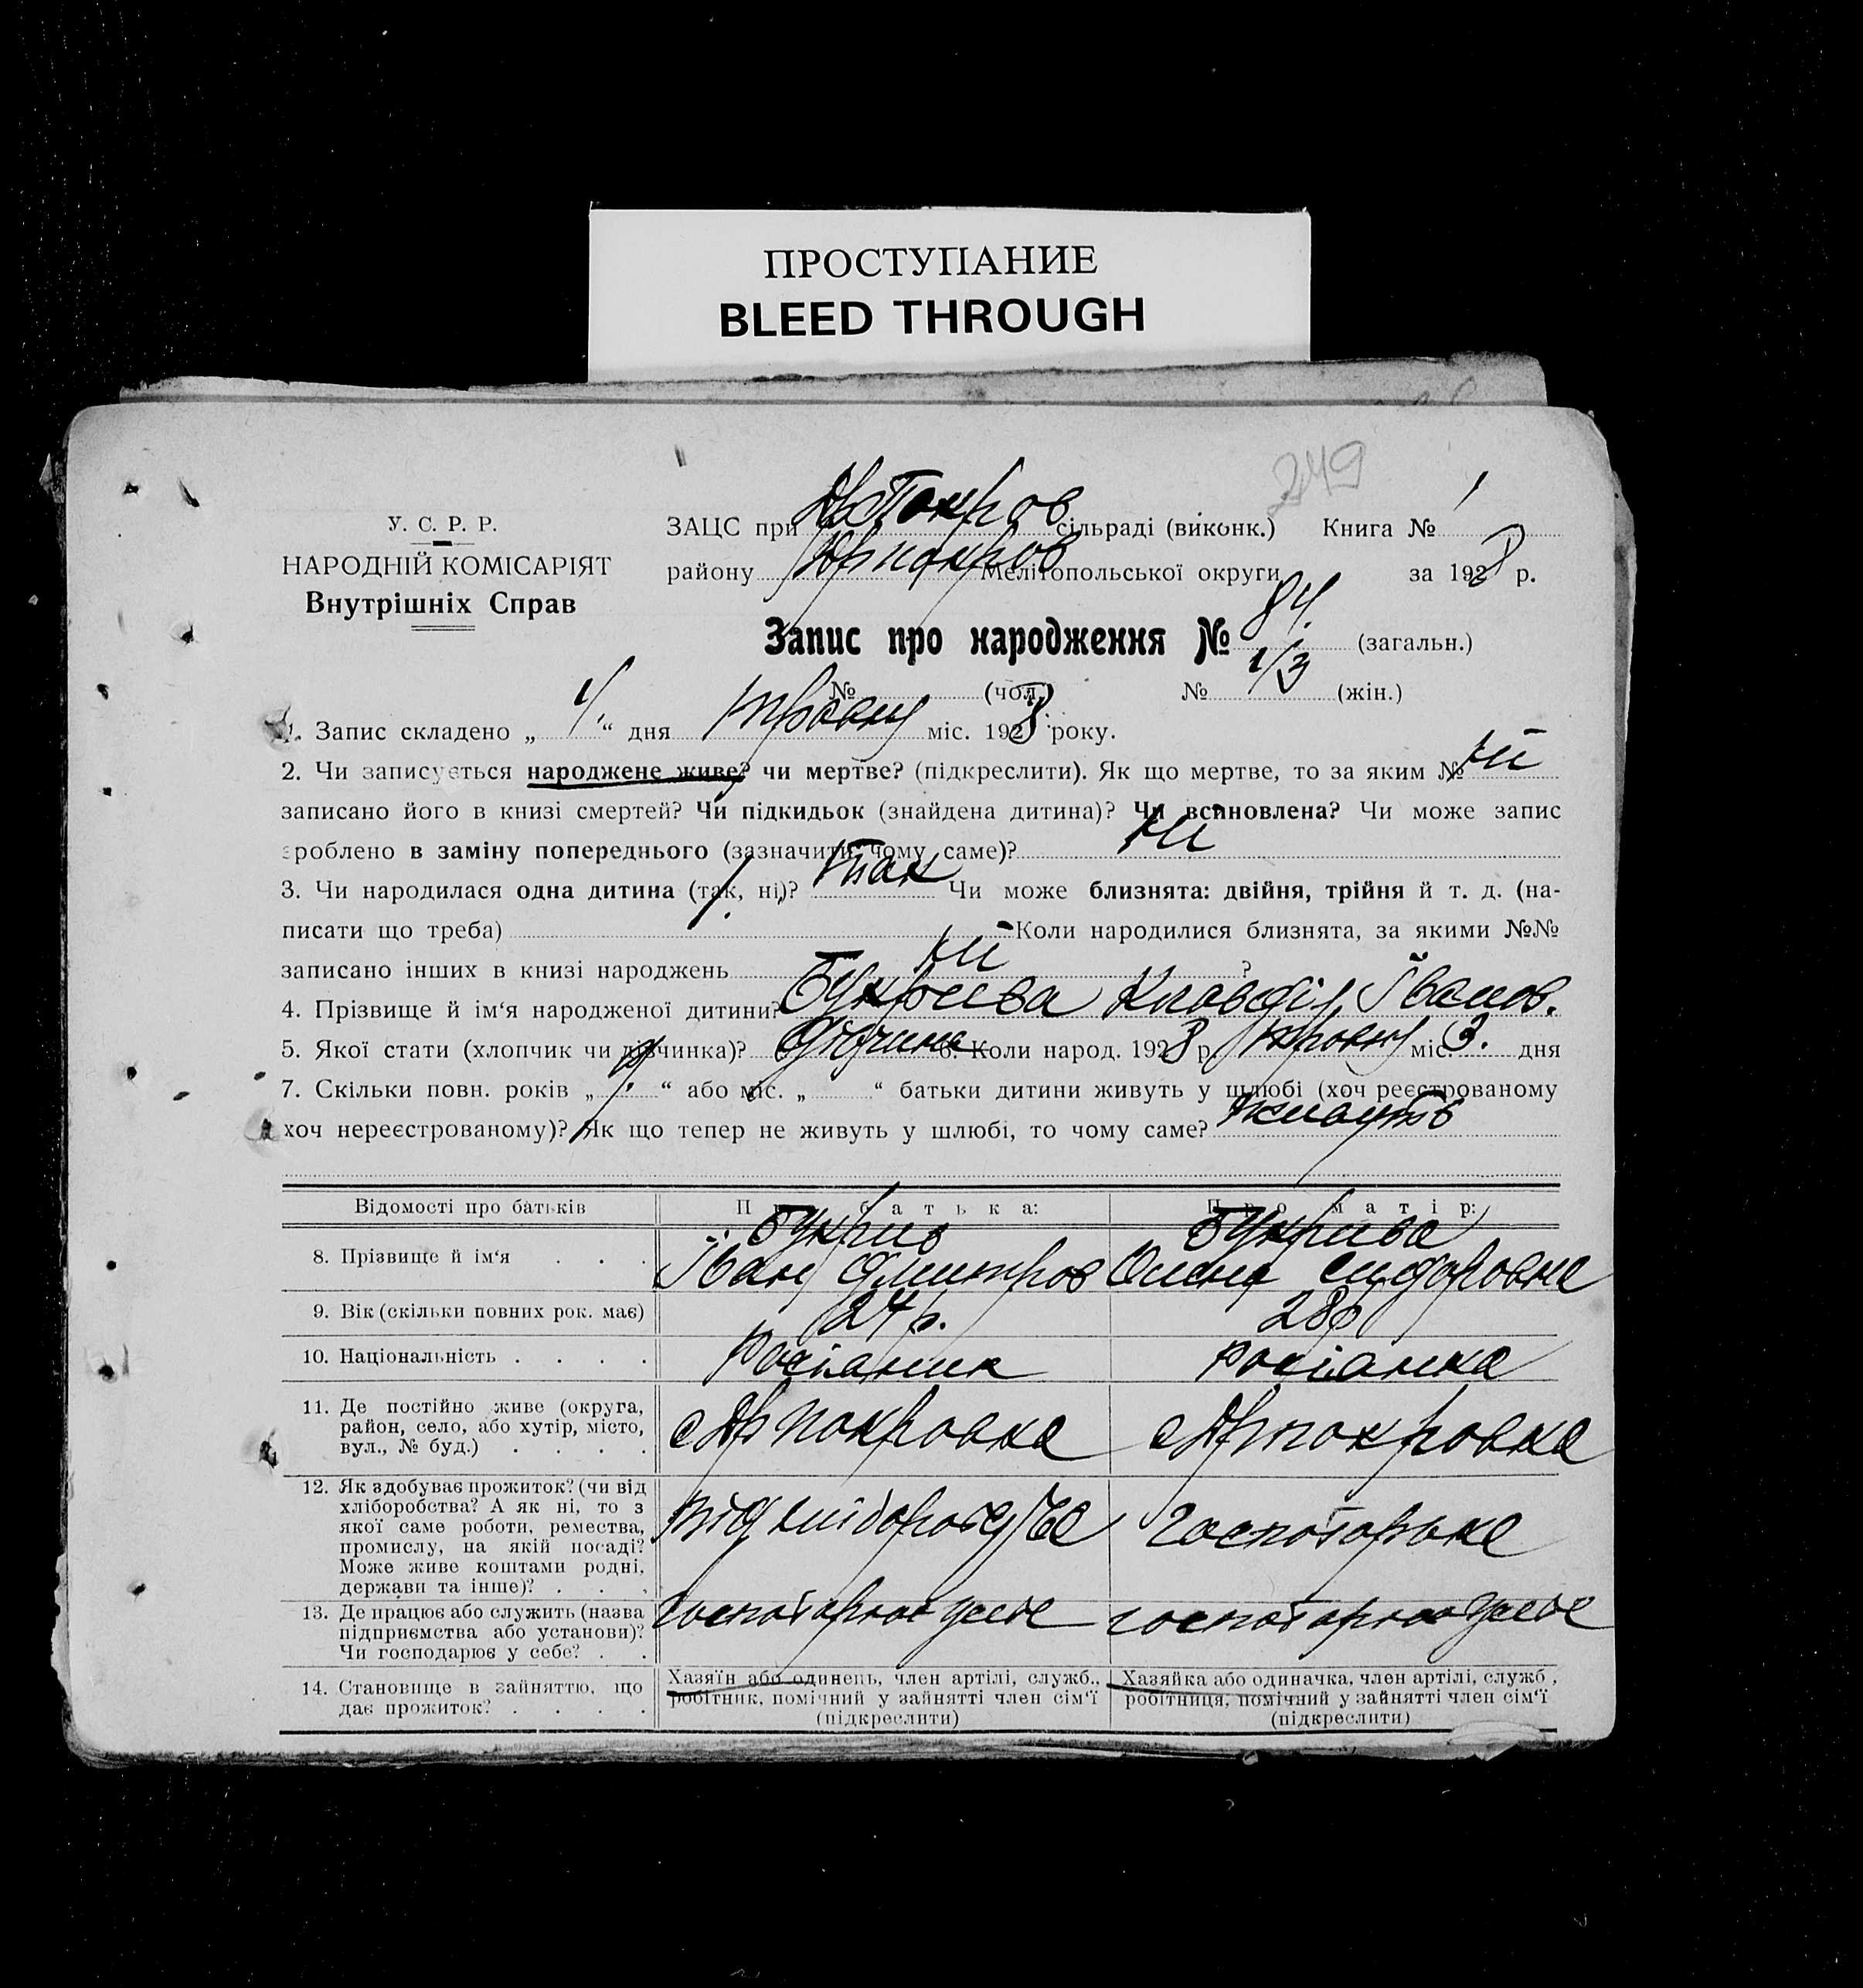 ПРОСТУПАНИЕ
BLEED THROUGH
249
У. С. Р. Р.
НАРОДНІЙ КОМІСАРІЯТ
Внутрішніх Справ
ЗАЦС при Др Покров сільраді (виконк.) Книга № 1
району Др покров Мелітопольської округи за 1928 р.
Запис про народження № 84. (загальн.)
№ (чол.) № 43 (жін.)
1. Запис складено „ 4. “ дня травня міс. 1928 року.
2. Чи записується народжене живе? чи мертве? (підкреслити). Як що мертве, то за яким № ні
записано його в книзі смертей? Чи підкидьок (знайдена дитина)? Чи всиновлена? Чи може запис
зроблено в заміну попереднього (зазначити чому саме)? ні
3. Чи народилася одна дитина (так, ні)? так Чи може близнята: двійня, трійня й т. д. (на-
писати що треба) Коли народилися близнята, за якими №№
записано інших в книзі народжень ні ?
4. Прізвище й ім‘я народженої дитини? Букрієва Клавдія Іванов.
5. Якої стати (хлопчик чи дівчинка)? дівчина 6. Коли народ. 1928 р. травня міс. 3. дня
7. Скільки повн. років „ “ або міс. „ “ батьки дитини живуть у шлюбі (хоч реєстрованому
хоч нереєстрованому)? Як що тепер не живуть у шлюбі, то чому саме? живуть
Відомості про батьків Про батька: Про матір:
8. Прізвище й ім‘я . . . Букрив Іван Дмитров Букрива Олена Сидоровна
9. Вік (скільки повних рок. має) 24 р. 28 р
10. Національність . . . . росіаник росіанка
11. Де постійно живе (округа,
район, село, або хутір, місто,
вул., № буд.) . . . . с Др покровка с Др покровка
12. Як здобуває прожиток? (чи від
хліборобства? А як ні, то з
якої саме роботи, ремества,
промислу, на якій посаді?
Може живе коштами родні,
держави та інше)? . . . від
13. Де працює або служить (назва
підприємства або установи)?
Чи господарює у себе? . .
14. Становище в зайняттю, що
дає прожиток? . . . .
Хазяїн або одинець, член артілі, служб.,
робітник, помічний у зайнятті член сім‘ї
(підкреслити)
Хазяйка або одиначка, член артілі, служб.,
робітниця, помічний у зайнятті член сім‘ї
(підкреслити)